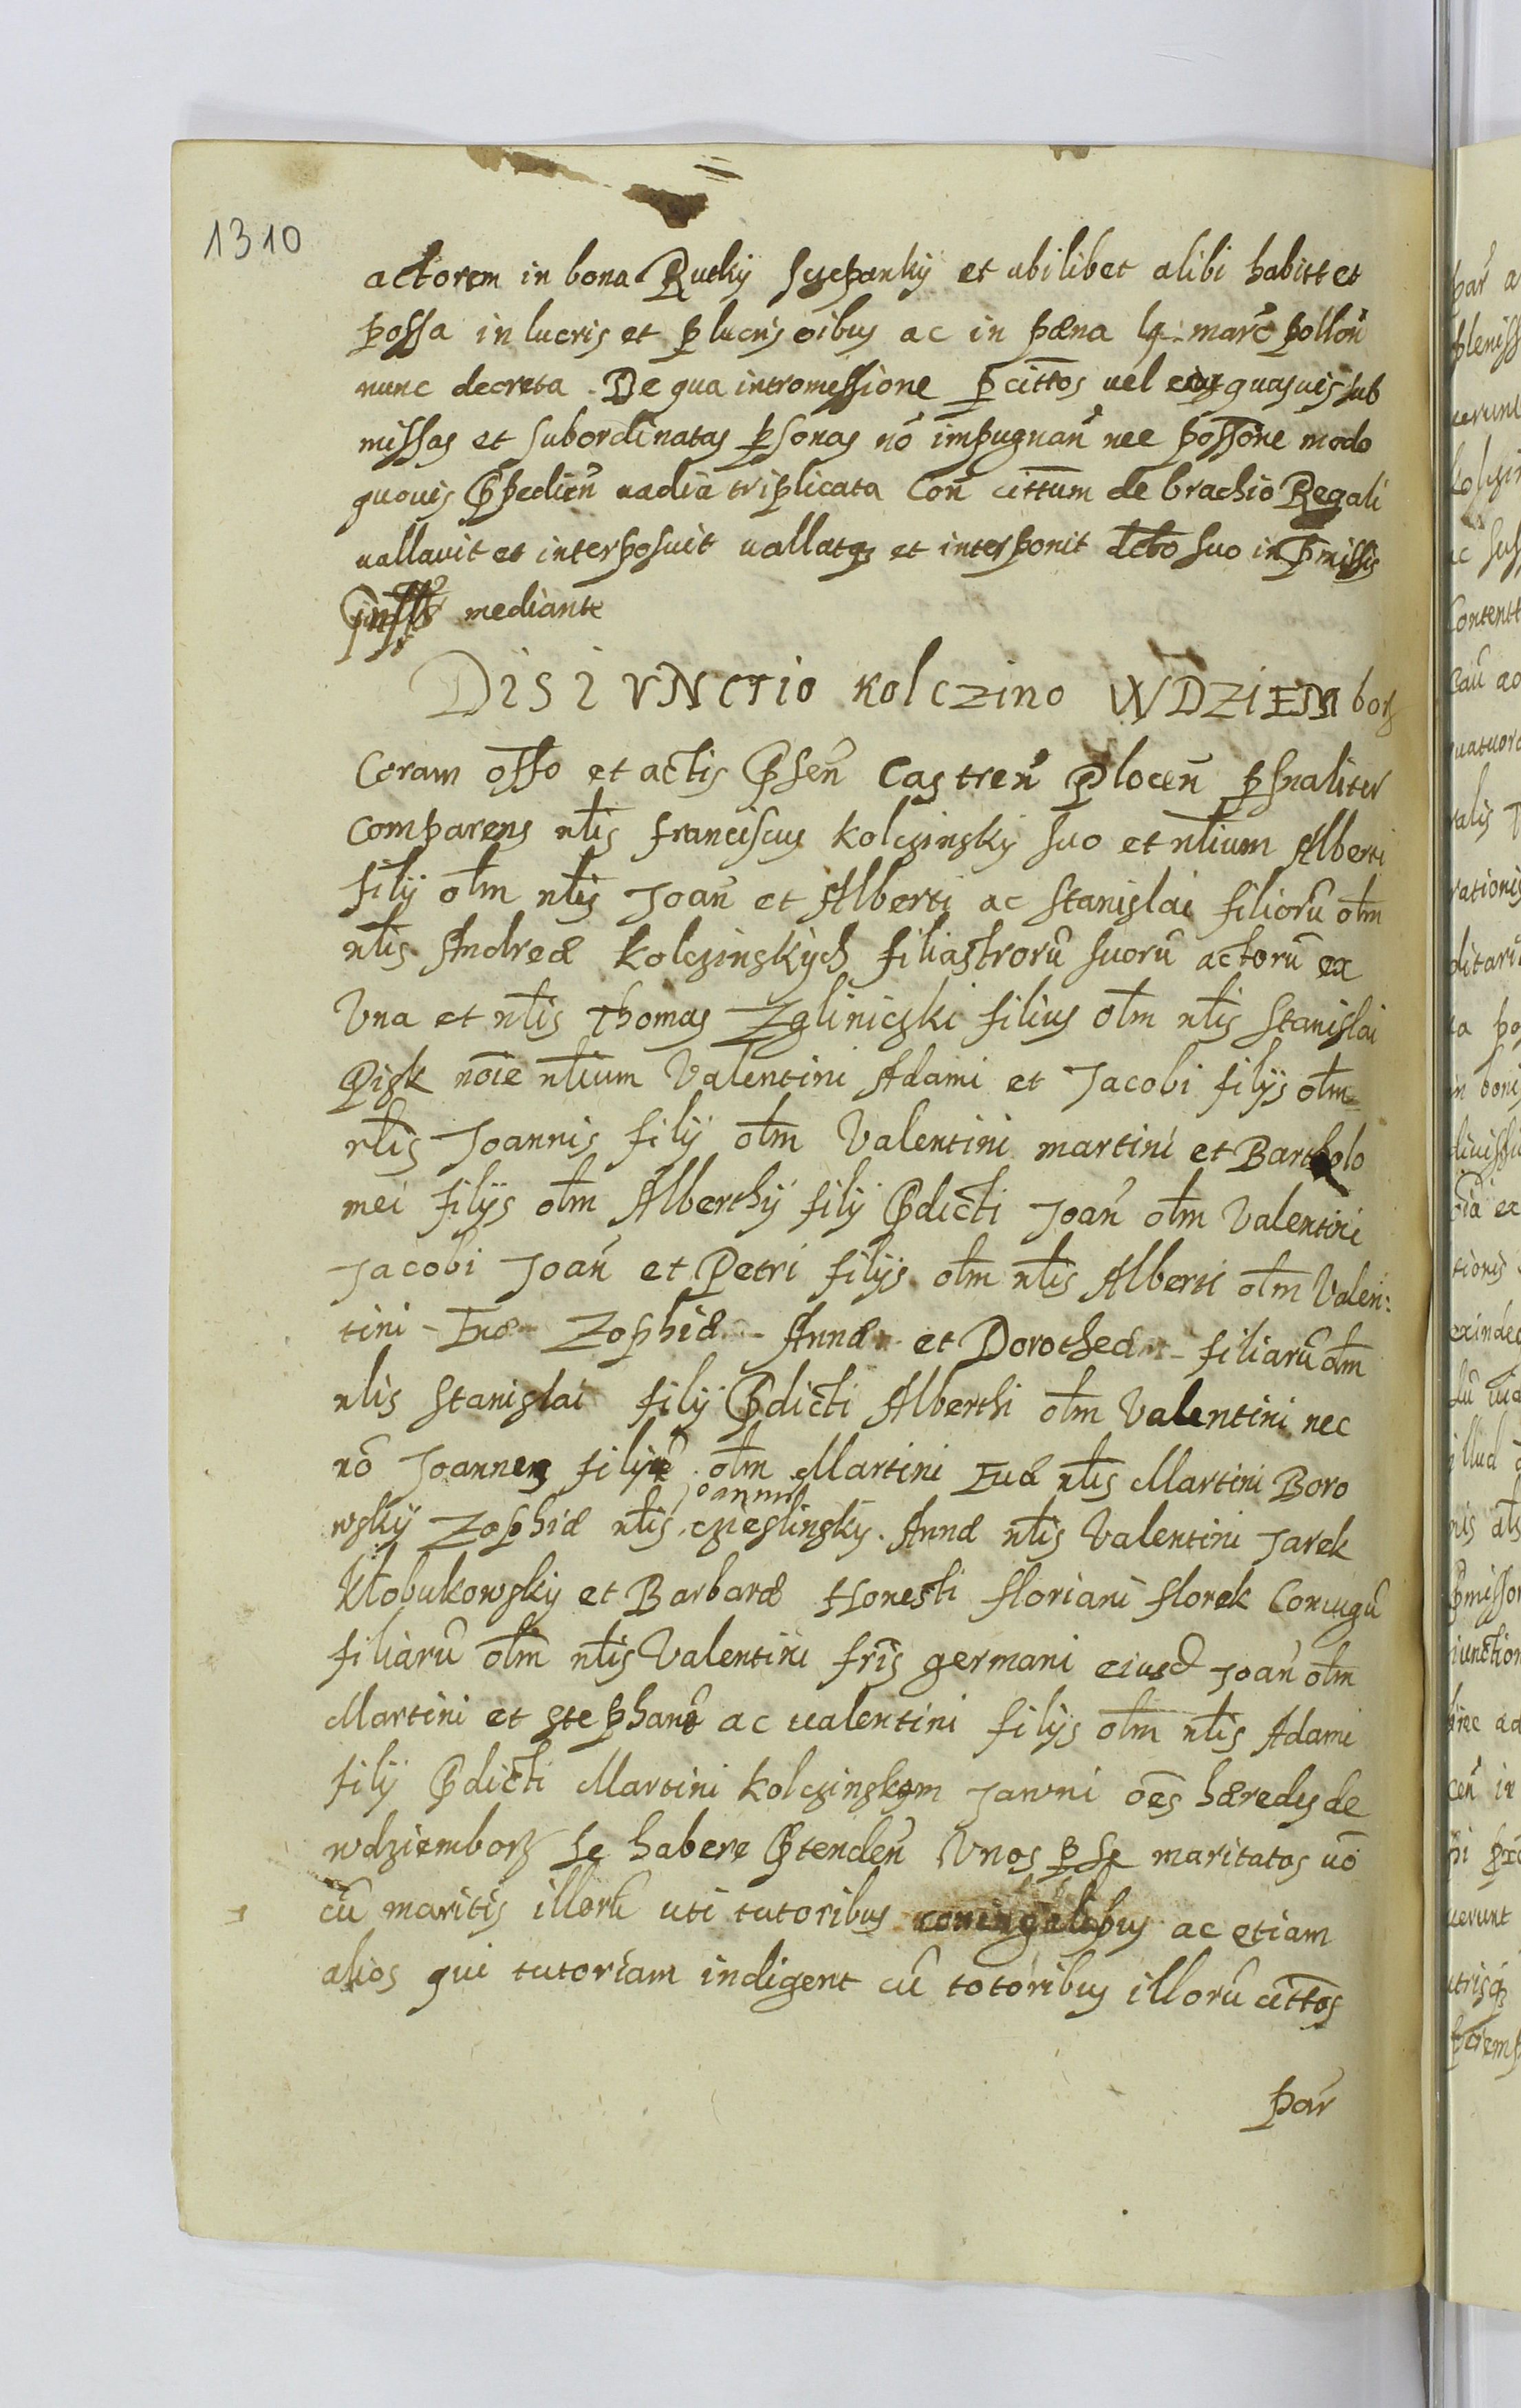 1310
actorem in bona Rutky Sczepanky et ubilibet alibi habitt et
possa in lucris et p lucris oibus ac in pæna marc̃ pollõn
nunc decreta. De qua intromissione p cittos uel eius quasuis sub
missas et subordinatas psonas nõ impugnañ nec possõne modo
quouis Ppedieñ uadia triplicata Coñ cittum de brachio Regali
uallauit et interposuit uallatq et interponit dcto suo in Pmissis
mediante
DISIVNCTIO Kolczino WDZIEMborz
Coram offo et actis Pseñ Castreñ Ploceñ psnaliter
comparens nlis Franciscus Kolczinsky suo et nlium Alberti
filij olm nlis Joañ et Alberti ac Stanislai filiorũ olm
nlis Andreæ Kolczinskych filiastrorũ suorũ actorũ ex
Vna et nlis Thomas Zgliniczki filius olm nlis Stanislai
Pisk noie nlium Valentini Adami et Jacobi filijs olm
nlis Joannis filij olm Valentini martini et Bartholo
mei filijs olm Alberthij filij Pdicti Joañ olm Valentini
Jacobi Joañ et Petri filijs olm nlis Alberti olm Valen:
tini - Euæ - Zophiæ - Annæ et Dorotheæ - filiarũ olm
nlis Stanislai filij Pdicti Alberthi olm Valentini nec
nõ Joannes olm Martini Euæ nlis Martini Boro
wsky Zophiæ nlis Joannis Czieslinsky. Annæ nlis Valentini Jarek
Klobukowsky et Barbaræ Honesti floriani florek Coniugũ
filiarũ olm nlis Valentini fris germani eiusd Joañ olm
Martini et Stephani ac ualentini filijs olm nlis Adami
filij Pdicti Martini Kolczinskym Jawni oẽs hæredes de
wdziemborz se habere Ptendeñ Vnos p se maritatos uõ
cũ maritis illorũ uti tutoribus coniugalibus ac etiam
alios qui tutoriam indigent cũ totoribus illorũ cittos
par